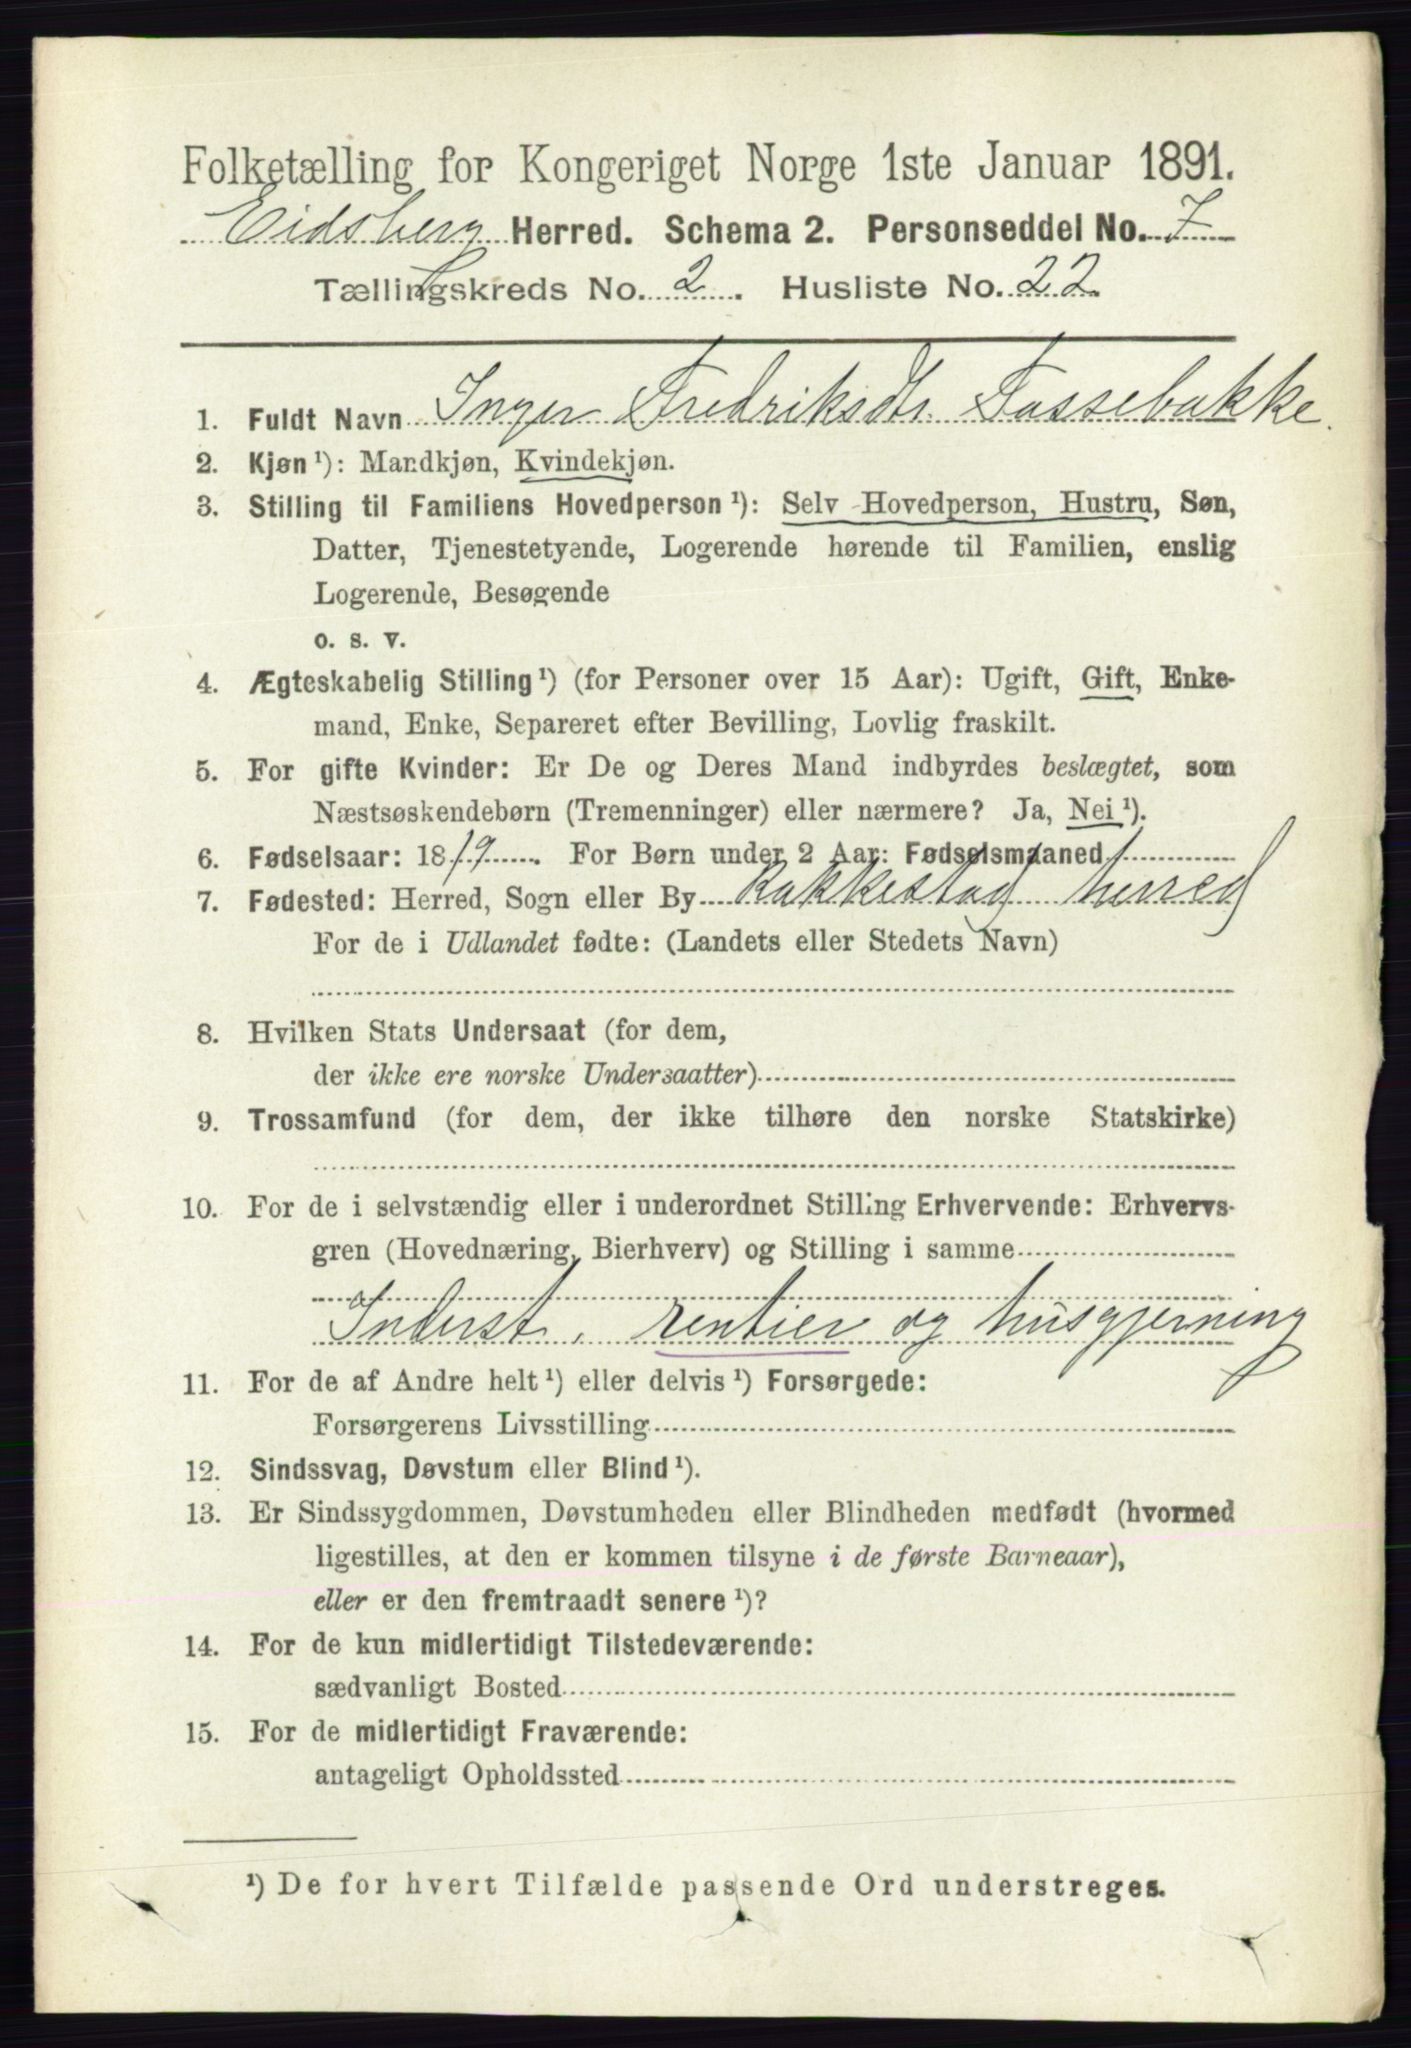 Folketælling for Kongeriget Norge 1ste Januar 1891.
Eidsberg Herred. Schema 2. Personseddel No. 7
Tællingskreds No. 2. Husliste No. 22
1. Fuldt Navn Inger Fredriksdtr. Fossebakke.
2. Kjøn ¹): Mandkjøn, Kvindekjøn.
3. Stilling til Familiens Hovedperson ¹): Selv Hovedperson, Hustru, Søn,
Datter, Tjenestetyende, Logerende hørende til Familien, enslig
Logerende, Besøgende
o. s. v.
4. Ægteskabelig Stilling ¹) (for Personer over 15 Aar): Ugift, Gift, Enke-
mand, Enke, Separeret efter Bevilling, Lovlig fraskilt.
5. For gifte Kvinder: Er De og Deres Mand indbyrdes beslægtet, som
Næstsøskendebørn (Tremenninger) eller nærmere? Ja, Nei ¹).
6. Fødselsaar: 1819. For Børn under 2 Aar: Fødselsmaaned
7. Fødested: Herred, Sogn eller By Rakkestad herred
For de i Udlandet fødte: (Landets eller Stedets Navn)
8. Hvilken Stats Undersaat (for dem,
der ikke ere norske Undersaatter)
9. Trossamfund (for dem, der ikke tilhøre den norske Statskirke)
10. For de i selvstændig eller i underordnet Stilling Erhvervende: Erhvervs-
gren (Hovednæring, Bierhverv) og Stilling i samme
Inderst, rentier og husgjerning
11. For de af Andre helt ¹) eller delvis ¹) Forsørgede:
Forsørgerens Livsstilling
12. Sindssvag, Døvstum eller Blind ¹).
13. Er Sindssygdommen, Døvstumheden eller Blindheden medfødt (hvormed
ligestilles, at den er kommen tilsyne i de første Barneaar),
eller er den fremtraadt senere ¹)?
14. For de kun midlertidigt Tilstedeværende:
sædvanligt Bosted
15. For de midlertidigt Fraværende:
antageligt Opholdssted
¹) De for hvert Tilfælde passende Ord understreges.